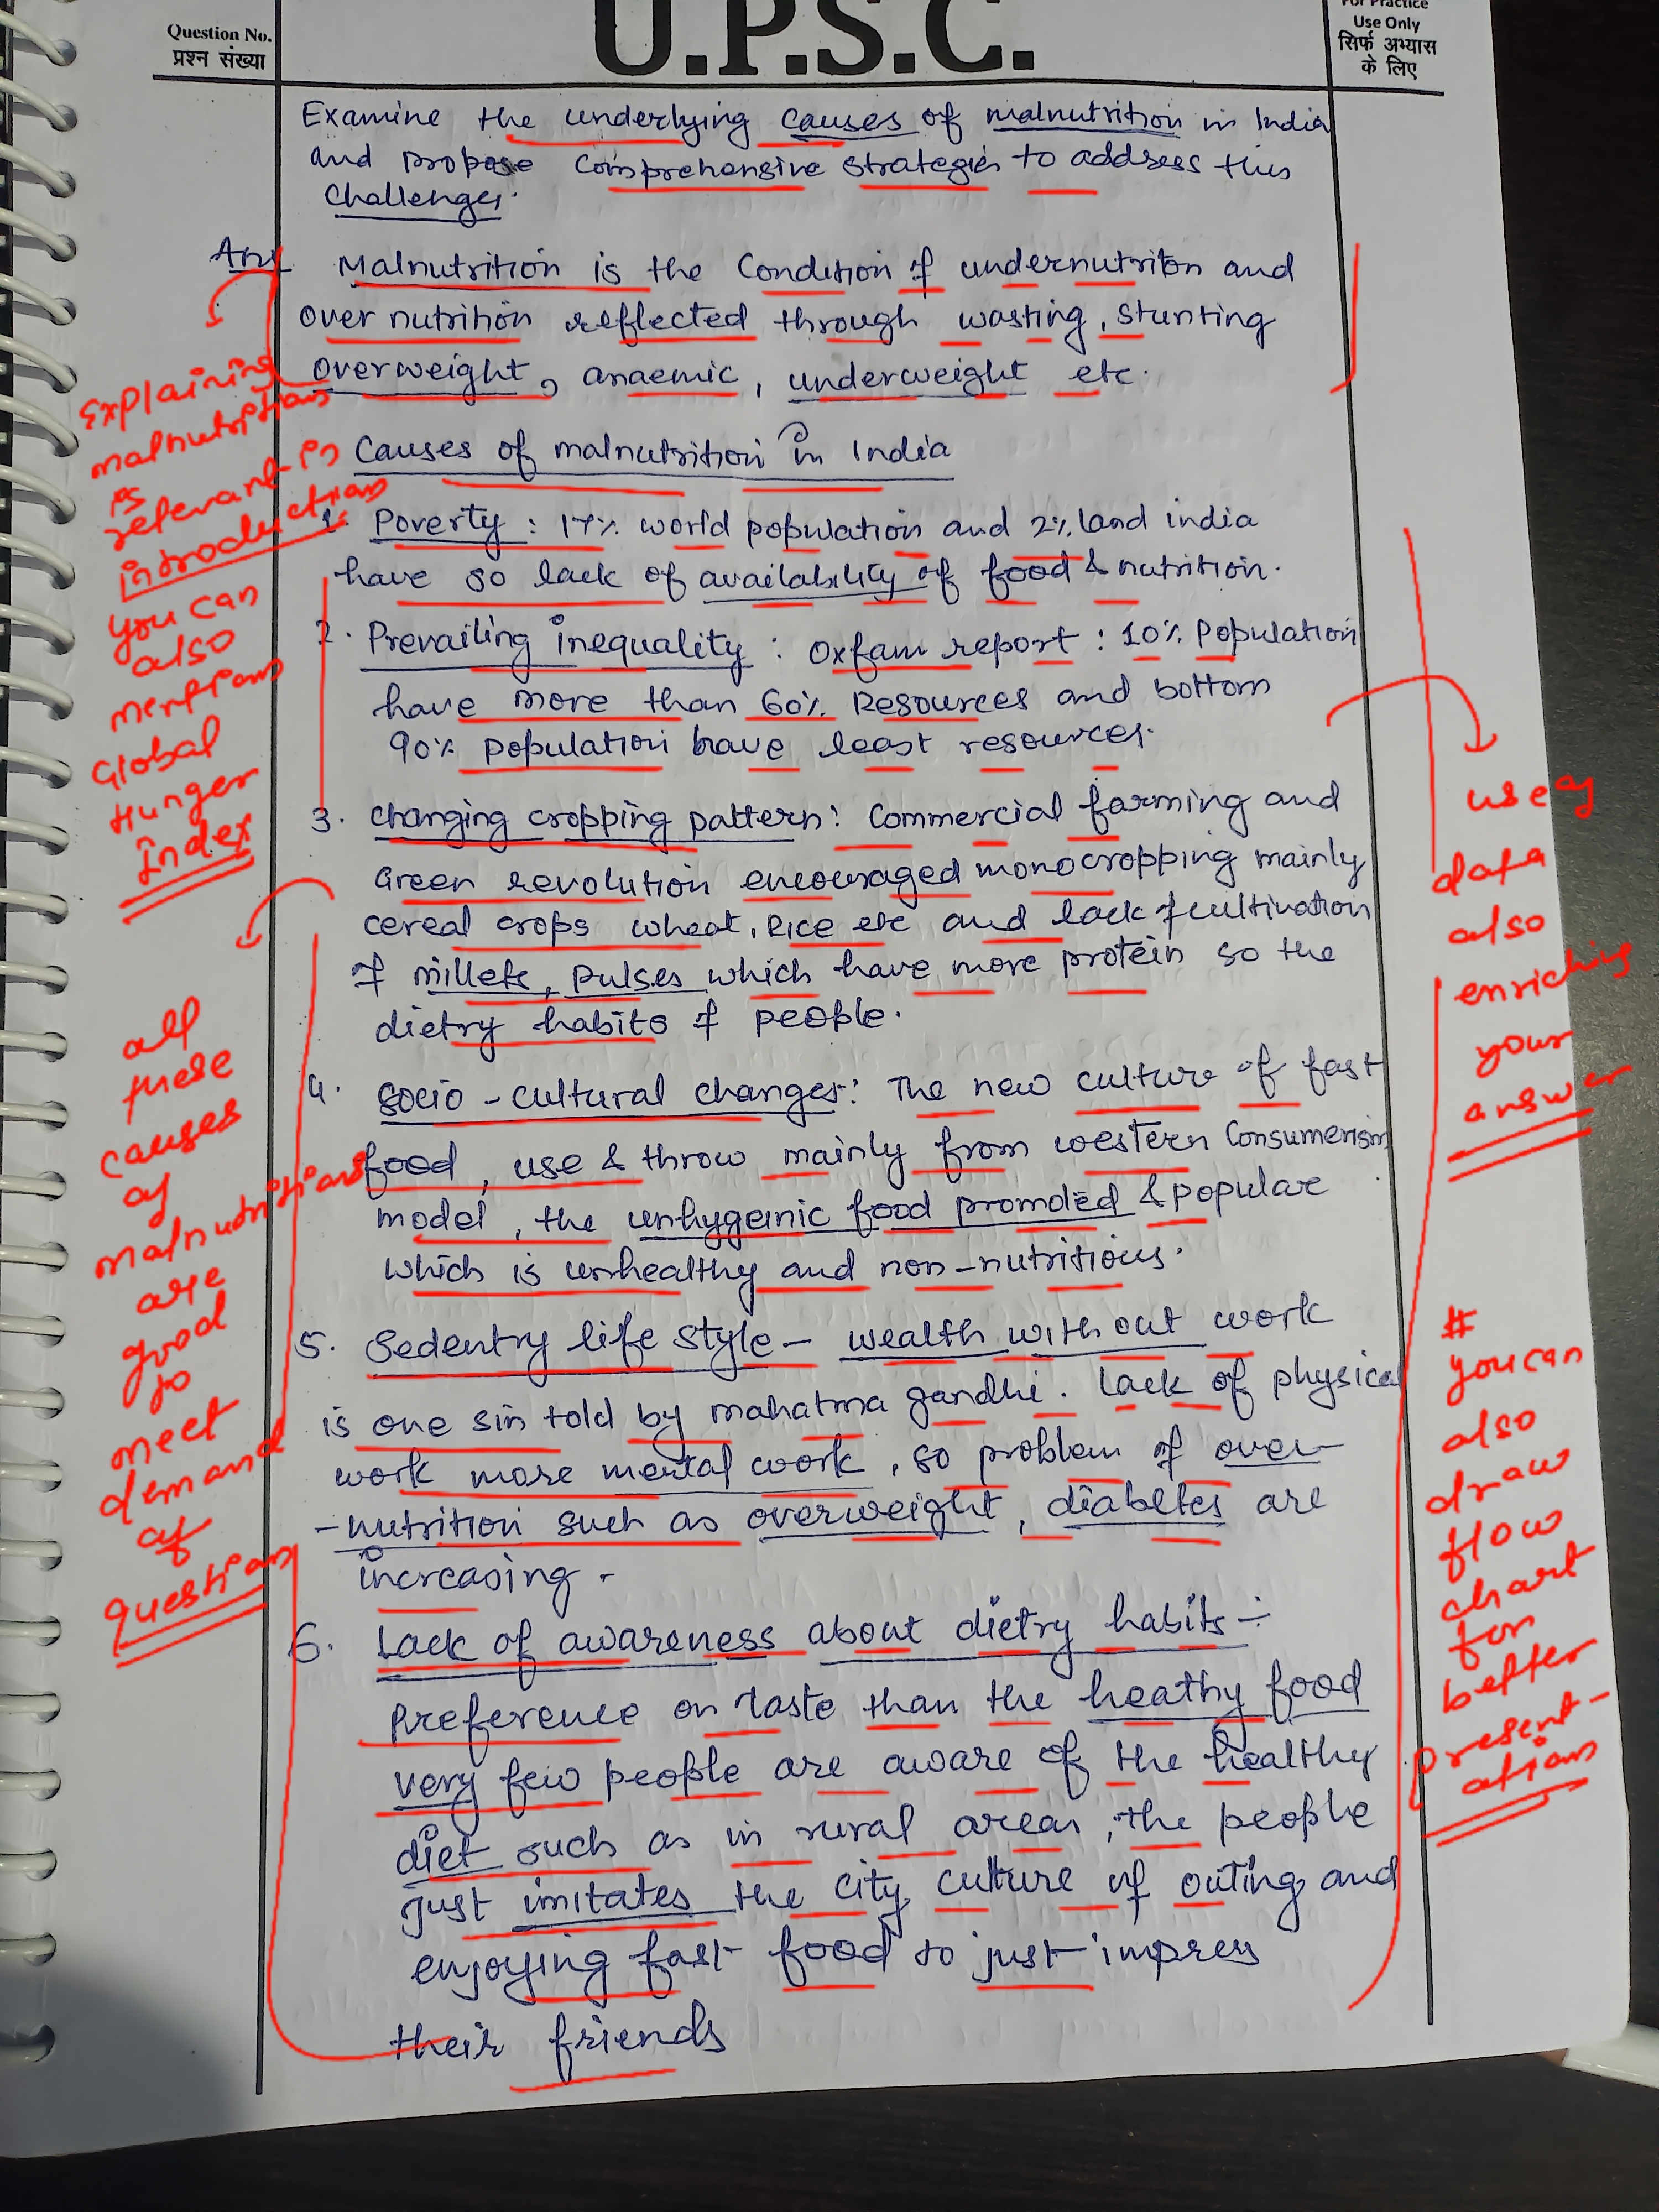 Question No.
प्रश्न संख्या
U.P.S.C.
For Practice
Use Only
सिर्फ अभ्यास
के लिए
Examine the underlying causes of malnutrition in India
and propose comprehensive strategies to address this
challenges.
Ans
Malnutrition is the condition of undernutriton and
over nutrition reflected through wasting, stunting
overweight, anaemic, underweight etc.
Causes of malnutrition in India
1. Poverty : 17% world population and 2% land india
have so lack of availability of food & nutrition.
2. Prevailing inequality : Oxfam report : 10% Population
have more than 60% Resources and bottom
90% population have least resources.
3. Changing cropping pattern: Commercial farming and
Green revolution encouraged monocropping mainly
cereal crops wheat, Rice etc and lack of cultivation
of millets, pulses which have more protein so the
dietry habits of people.
4. Socio-cultural changes: The new culture of fast
food, use & throw mainly from western Consumerism
model, the unhygeinic food promoted & popular
which is unhealthy and non-nutritious.
5. Sedentry life style - wealth without work
is one sin told by mahatma gandhi. Lack of physical
work more mental work, so problem of over-
-nutrition such as overweight, diabetes are
increasing.
6. Lack of awareness about dietry habits :-
Preference on taste than the heathy food
very few people are aware of the healthy
diet such as in rural areas, the people
just imitates the city culture of outing and
enjoying fast food to just impress
their friends
Explaining
malnutrition
is
relevant in
introduction
you can
also
mention
Global
Hunger
Index
all
these
causes
of
malnutrition
are
good
to
meet
demand
of
question
use of
data
also
enriching
your
answer
#
you can
also
draw
flow
chart
for
better
present-
ation